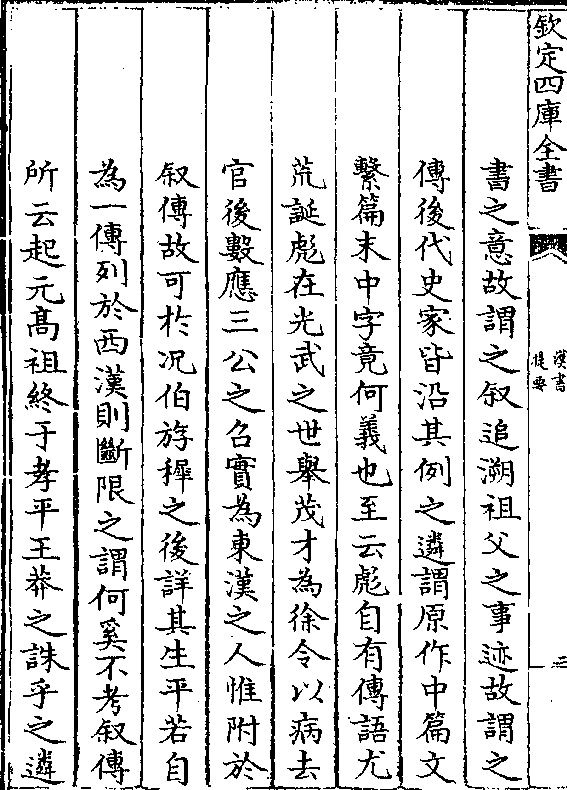 欽定四庫全書
漢書
提要
三
書之意故謂之叙追溯祖父之事迹故謂之
傳後代史家皆沿其例之遴謂原作中篇文
繫篇末中字竟何義也至云彪自有傳語尤
荒誕彪在光武之世舉茂才為徐令以病去
官後數應三公之召實為東漢之人惟附於
叙傳故可於况伯斿穉之後詳其生平若自
為一傳列於西漢則斷限之謂何奚不考叙傳
所云起元髙祖終于孝平王莽之誅乎之遴